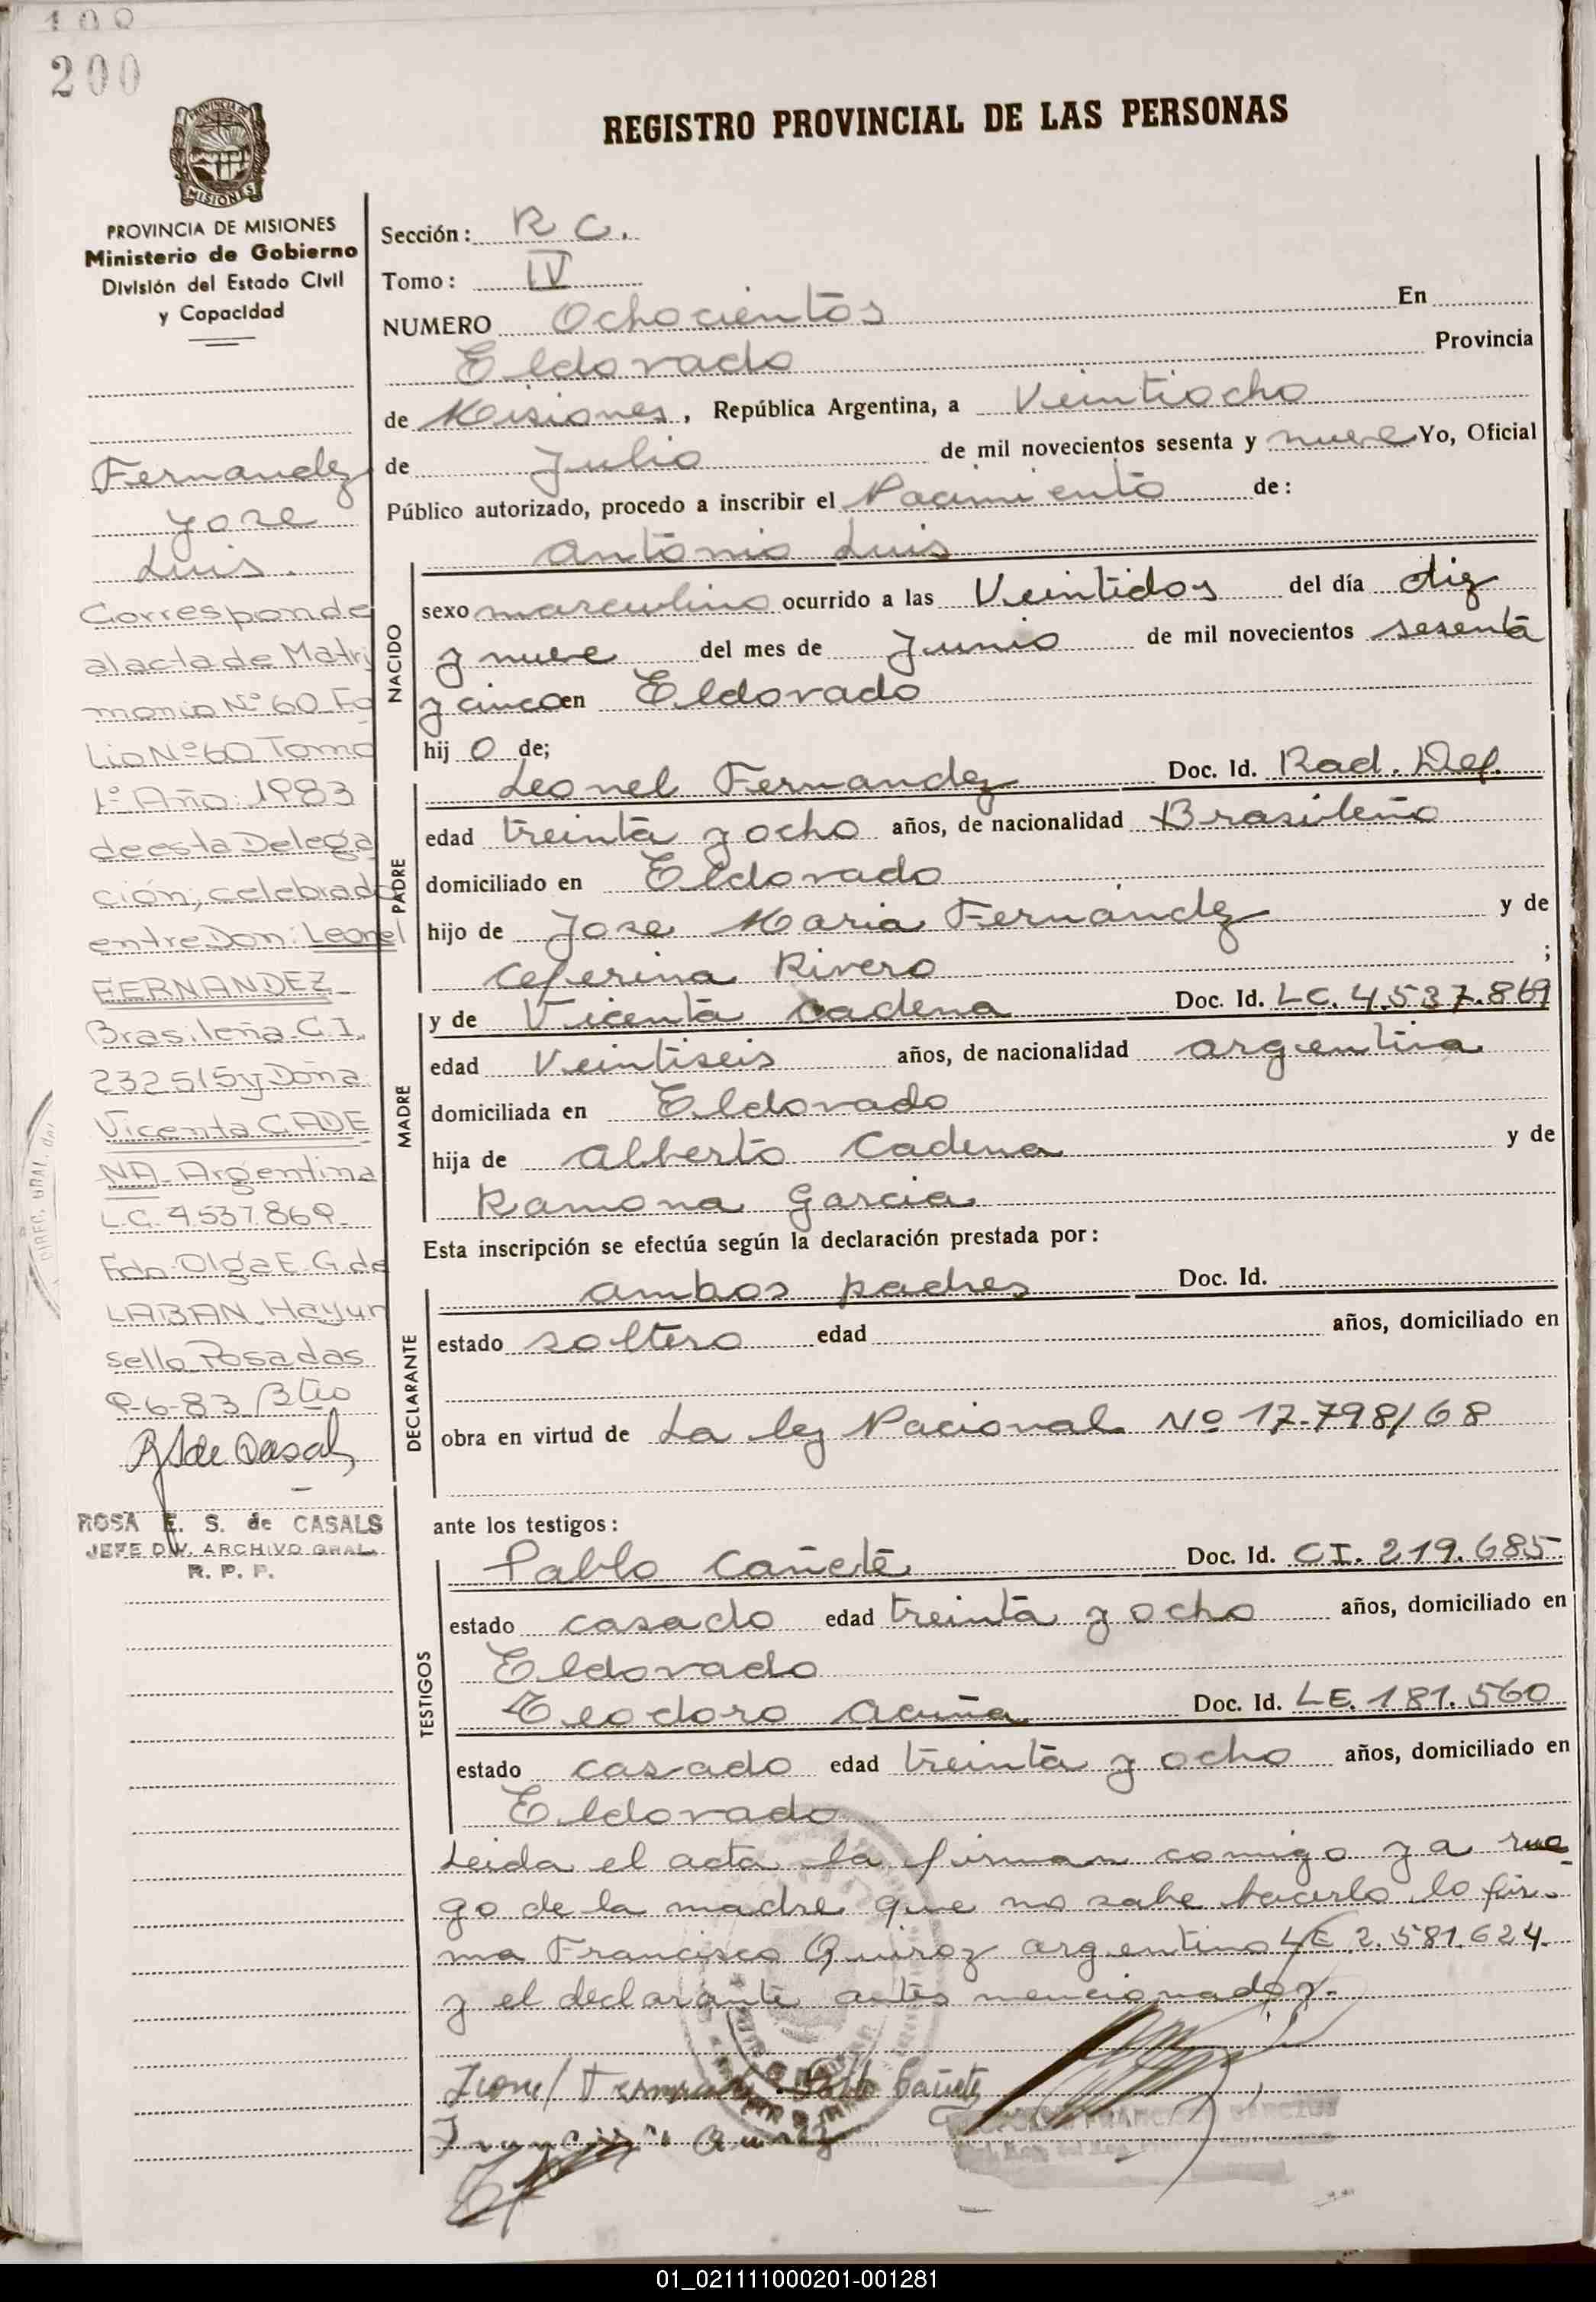 200
REGISTRO PROVINCIAL DE LAS PERSONAS
PROVINCIA DE MISIONES
Ministerio de Gobierno
División del Estado Civil
y Capacidad
Fernandez
Jose
Luis.
Corresponde
al acta de Matri
monio Nº 60 Fo
lio Nº 60 Tomo
1º Año: 1983
de esta Delega
ción, celebrado
entre Don: Leonel
FERNANDEZ
Brasileña C.I.
232515 y Doña
Vicenta CADE
NA Argentina
L.C. 4.537.869
Fdo. Olga E. G. de
LABAN. Hay un
sello Posadas
9-6-83
ROSA E. S. de CASALS
JEFE DIV. ARCHIVO GRAL.
R. P. P.
Sección: R C.
Tomo: IV
NUMERO Ochocientos En
Eldorado Provincia
de Misiones, República Argentina, a Veintiocho
de Julio de mil novecientos sesenta y nueve Yo, Oficial
Público autorizado, procedo a inscribir el Nacimiento de:
Antonio Luis
NACIDO
sexo masculino ocurrido a las Veintidos del día diez
y nueve del mes de Junio de mil novecientos sesenta
y cinco en Eldorado
hij o de;
PADRE
Leonel Fernandez Doc. Id. Rad. Def.
edad treinta y ocho años, de nacionalidad Brasileño
domiciliado en Eldorado
hijo de Jose Maria Fernandez y de
Ceferina Rivero ;
MADRE
y de Vicenta Cadena Doc. Id. LC. 4.537.869
edad Veintiseis años, de nacionalidad argentina
domiciliada en Eldorado
hija de Alberto Cadena y de
Ramona Garcia
Esta inscripción se efectúa según la declaración prestada por:
DECLARANTE
ambos padres Doc. Id.
estado soltero edad años, domiciliado en
obra en virtud de La ley Nacional Nº 17.798/68
ante los testigos:
TESTIGOS
Pablo Cañete Doc. Id. CI. 219.685
estado casado edad treinta y ocho años, domiciliado en
Eldorado
Teodoro Acuña Doc. Id. LE. 181.560
estado casado edad treinta y ocho años, domiciliado en
Eldorado
Leida el acta la firman comigo y a rue
go de la madre que no sabe hacerlo lo fir-
ma Francisco Quiroz argentino LE 2.581.624.
y el declarante antes mencionado.
01_021111000201-001281